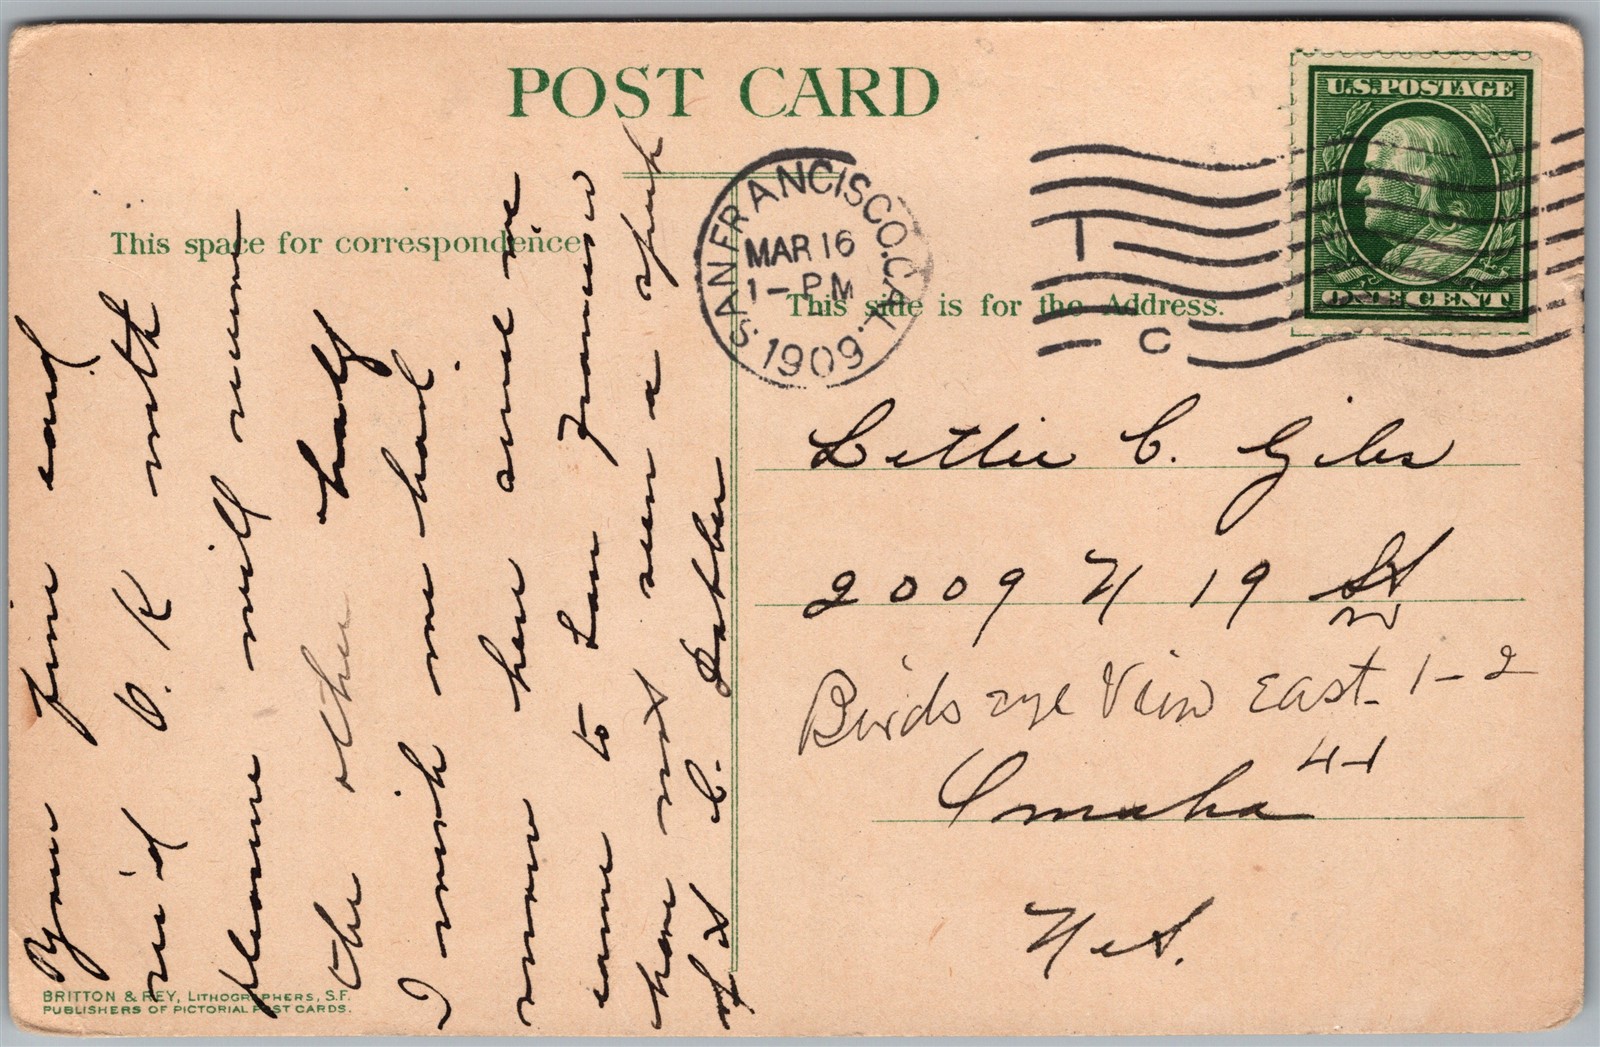 POST CARD
This space for correspondence
This side is for the Address.
U.S. POSTAGE
ONE CENT
SAN FRANCISCO. CAL.
MAR 16
1 - PM
1909
T
C
Your fine card
rec'd O.K. with
pleasure will
the other half
I wish we had.
snow here since we
came to San Francisco
have not seen a speck
of it C.
Lettie C. Giles
2009 N 19 St
Birds eye View East 1-2
Omaha
Neb.
BRITTON & REY, LITHOGRAPHERS, S.F.
PUBLISHERS OF PICTORIAL POST CARDS.